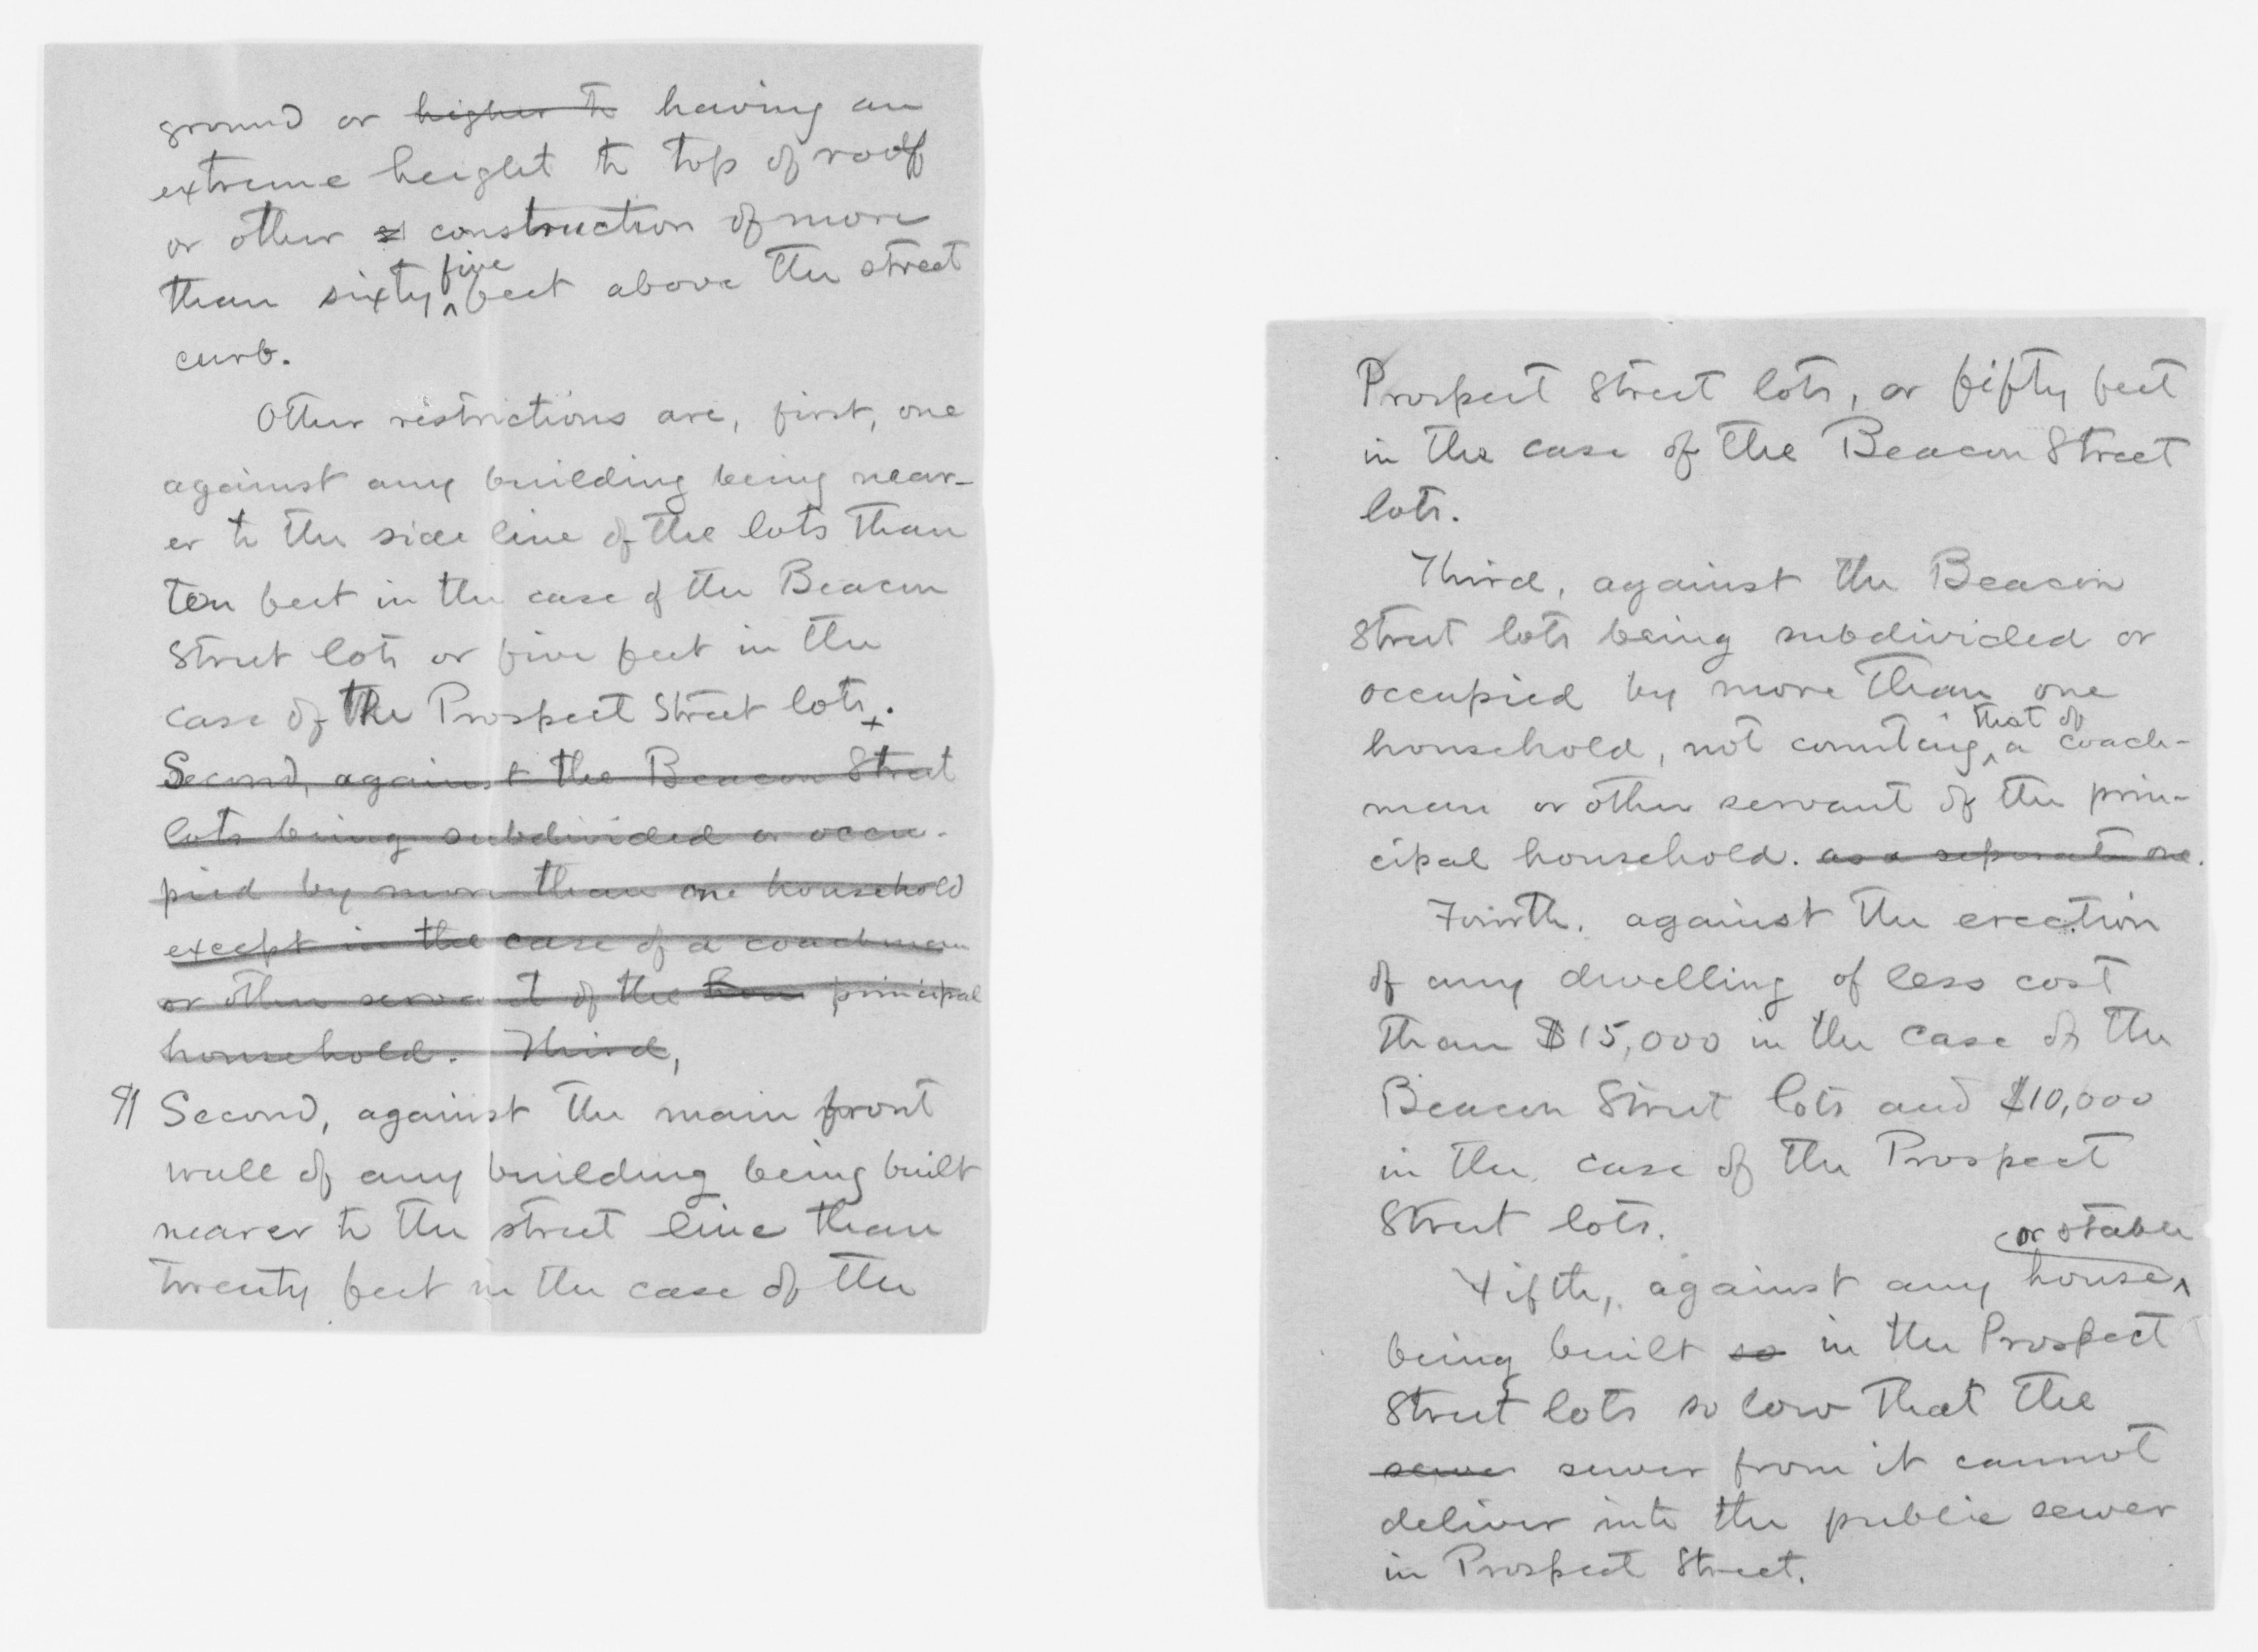 ground or higher to having an
extreme height to top of roof
or other construction of more
than sixty five feet above the street
curb.
Other restrictions are, first, one
against any building being near-
er to the side line of the lots than
ten feet in the case of the Beacon
Street lots or five feet in the
case of the Prospect Street lots.
Second, against the Beacon Street
lots being subdivided or occu-
pied by more than one household
except in the case of a coachman
or other servant of the principal
household. Third,
¶ Second, against the main front
wall of any building being built
nearer to the street line than
twenty feet in the case of the
Prospect Street lots, or fifty feet
in the case of the Beacon Street
lots.
Third, against the Beacon
Street lots being subdivided or
occupied by more than one
household, not counting that of a coach-
man or other servant of the prin-
cipal household. as a separate one.
Fourth, against the erection
of any dwelling of less cost
than $15,000 in the case of the
Beacon Street lots and $10,000
in the case of the Prospect
Street lots.
Fifth, against any house or stable
being built so in the Prospect
Street lots so low that the
sewer sewer from it cannot
deliver into the public sewer
in Prospect Street.